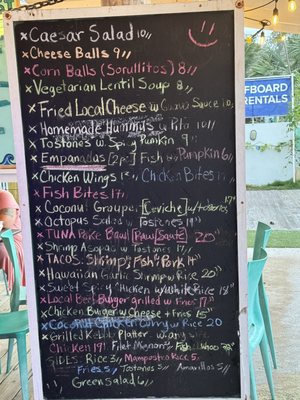 x Caesar Salad 10 //
x Cheese Balls 9 //
x Corn Balls (Sorullitos) 8 //
x Vegetarian Lentil Soup 8 //
x Fried Local Cheese w Guava Sauce 10 //
x Homemade Hummus w Pita 10 //
x Tostones w Spicy Pumkin 9 //
x Empanadas [2pc] Fish Pumpkin 6 //
x Chicken Wings Chicken Bites
x Fish Bites 17
x Coconut Grouper [Ceviche] w/tostones
x Octopus Salad w Tostones
x TUNA Poke Bowl [Raw] Sauté 20
x Shrimp w Tostones 17
x TACOS. Shrimp, Fish, Pork 14
x Hawaiian Garlic Shrimp w Rice 20
x Sweet Spicy Chicken w White Rice 18
x Local Beef Burger grilled w Fries 17
x Chicken Burger w Cheese + Fries 15
x Coconut Chicken Curry w Rice 20
x Grilled Kebab Platter w
Chicken 19 Filet Mignon Fish
SIDES: Rice 3 // Mamposteo Rice 5
Fries 5 // Tostones 5 // Amarillos 5 //
Green Salad 6 //
FBOARD
RENTALS